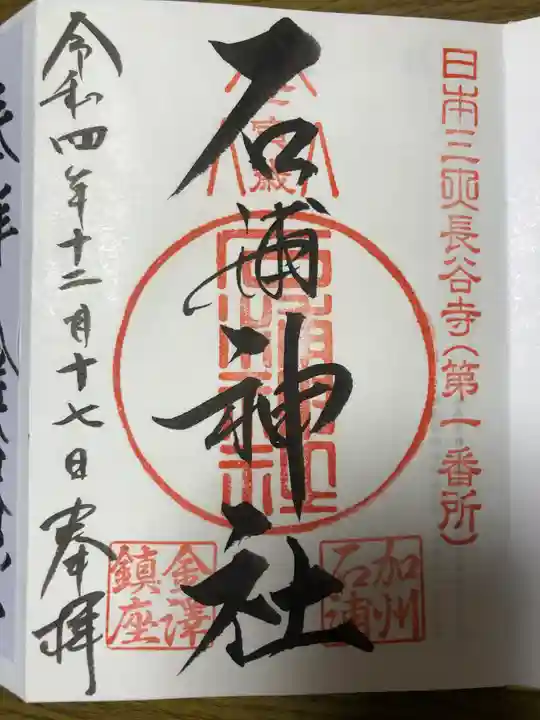 日本三所長谷寺(第一番所)
石浦神社
加州
石浦
金澤
鎮座
令和四年十二月十七日奉拝